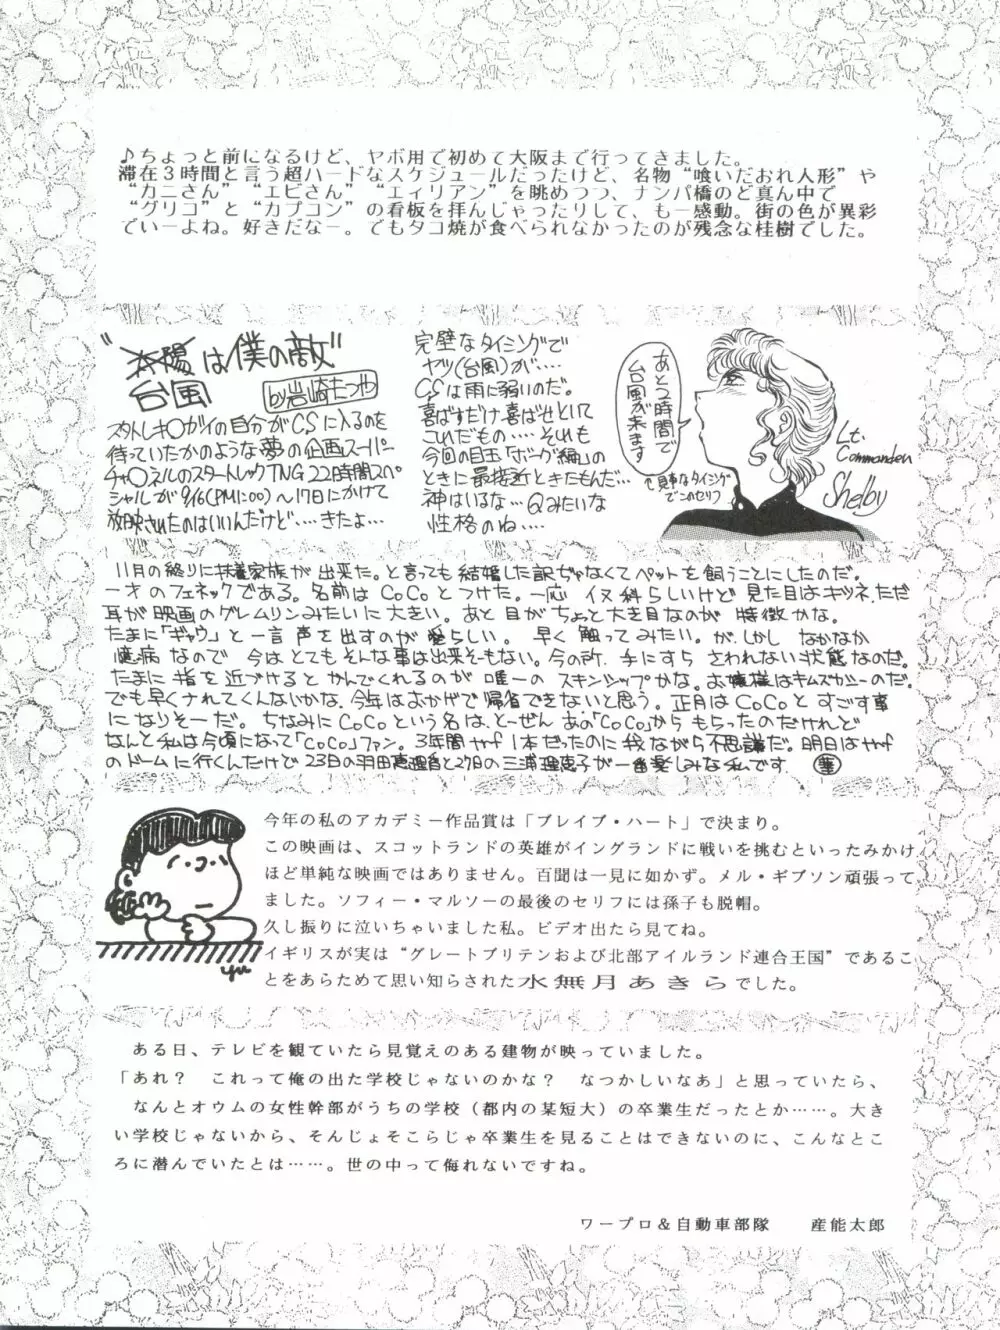 ♪ちょっと前になるけど、ヤボ用で初めて大阪まで行ってきました。
滞在3時間と言う超ハードなスケジュールだったけど、名物“喰いだおれ人形”や
“カニさん”“エビさん”“エィリアン”を眺めつつ、ナンパ橋のど真ん中で
“グリコ”と“カプコン”の看板を拝んじゃったりして、も一感動。街の色が異彩
でいーよね。好きだなー。でもタコ焼が食べられなかったのが残念な桂樹でした。
“太陽は僕の敵”
台風
by岩崎たつや
スタトレキ○ガイの自分がCSに入るのを
待っていたかのような夢の企画スーパー
チャ○ネルのスタートレックTNG 22時間スペ
シャルが9/16(PM1:00)〜17日にかけて
放映されたのはいいんだけど‥‥きたよ…
完璧なタイミングで
ヤツ(台風)が‥‥
CSは雨に弱いのだ。
喜ばすだけ喜ばせといて
これだもの‥‥それも
今回の目玉「ボーグ編」の
ときに最接近ときたもんだ…
神はいるな…Qみたいな
性格のね‥‥
あと2時間で
台風が来ます
↑見事なタイミング
でこのセリフ
Lt.
Commander
Shelby
11月の終りに扶養家族が出来た。と言っても結婚した訳ぢゃなくてペットを飼うことにしたのだ。
一才のフェネックである。名前はCoCoとつけた。一応イヌ科らしいけど見た目はキツネ、ただ
耳が映画のグレムリンみたいに大きい。あと目がちょっと大き目なのが特徴かな。
たまに「ギャウ」と一言声を出すのが愛らしい。早く触ってみたい。が、しかしなかなか
臆病なので今はとてもそんな事は出来そーもない。今の所、手にすらさわれない状態なのだ。
たまに指を近づけるとかんでくれるのが唯一のスキンシップかな。お嬢様はキムズガシーのだ。
でも早くナれてくんないかな。今年はおかげで帰省できないと思う。正月はCoCoとすごす事
になりそーだ。ちなみにCoCoという名は、とーぜんあの「CoCo」からもらったのだけれど
なんと私は今頃になって「CoCo」ファン。3年間ゃf 1本だったのに我ながら不思議だ。明日はゃf
のドームに行くんだけど23日の羽田恵理香と27日の三浦理恵子が一番楽しみな私です 華
今年の私のアカデミー作品賞は「ブレイブ・ハート」で決まり。
この映画は、スコットランドの英雄がイングランドに戦いを挑むといったみかけ
ほど単純な映画ではありません。百聞は一見に如かず。メル・ギブソン頑張って
ました。ソフィー・マルソーの最後のセリフには孫子も脱帽。
久し振りに泣いちゃいました私。ビデオ出たら見てね。
イギリスが実は“グレートブリテンおよび北部アイルランド連合王国”であるこ
とをあらためて思い知らされた水無月あきらでした。
yu
ある日、テレビを観ていたら見覚えのある建物が映っていました。
「あれ？　これって俺の出た学校じゃないのかな？　なつかしいなあ」と思っていたら、
なんとオウムの女性幹部がうちの学校（都内の某短大）の卒業生だったとか……。大き
い学校じゃないから、そんじょそこらじゃ卒業生を見ることはできないのに、こんなとこ
ろに潜んでいたとは……。世の中って侮れないですね。
ワープロ＆自動車部隊　　産能太郎